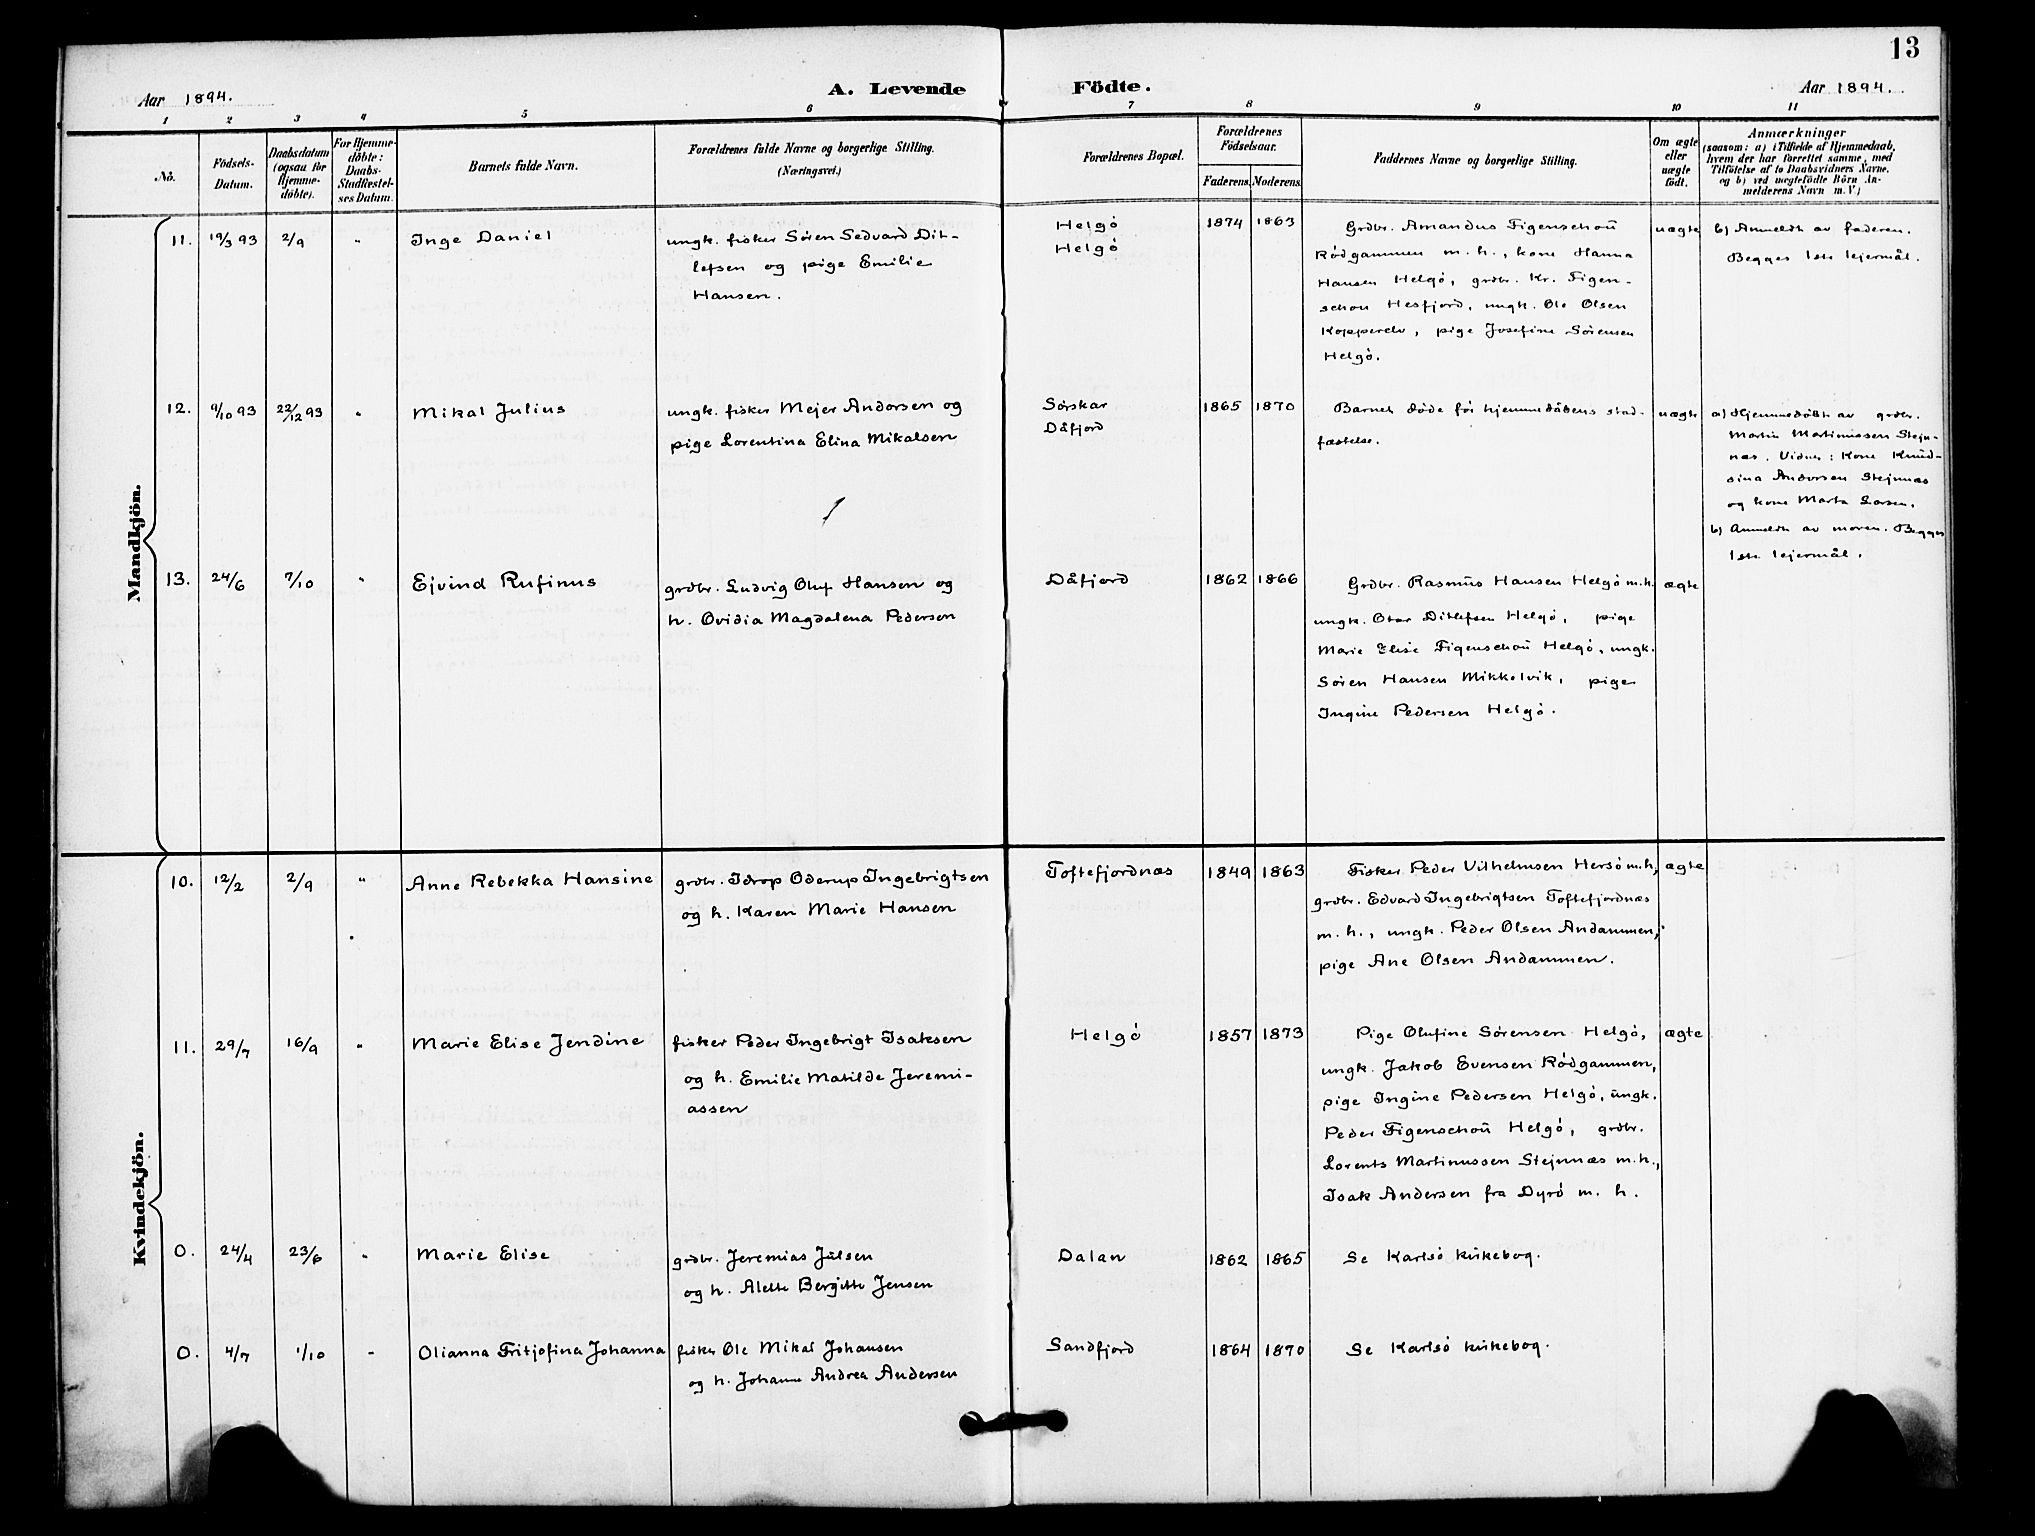 13
Aar 1894.
A. Levende Födte.
Aar 1894.
1 2 3 4 5 6 7 8 9 10 11
No.
Födsels-
Datum.
Daabsdatum
(ogsaa for
Hjemme-
döbte).
For Hjemme-
döbte:
Daabs-
Stadfæstel-
ses Datum.
Barnets fulde Navn.
Forældrenes fulde Navne og borgerlige Stilling.
(Næringsvei.)
Forældrenes Bopæl.
Forældrenes
Födselsaar.
Faderens. Moderens.
Faddernes Navne og borgerlige Stilling.
Om ægte
eller
uægte
födt.
Anmærkninger
(saasom: a) i Tilfælde af Hjemmedaab,
hvem der har forrettet samme, med
Tilföielse af to Daabsvidners Navne,
og b) ved uægtefödte Börn An-
melderens Navn m. V.)
Mandkjön.
11. 19/3 93 2/9 " Inge Daniel
ungk. fisker Sören Sedvard Dit-
lefsen og pige Emilie
Hansen.
Helgö
Helgö
1874 1863
Grdbr. Amandus Figenschoŭ
Rödgammen m. h., kone Hanna
Hansen Helgö, grdbr. Kr. Figen-
schou Hesfjord, ungk. Ole Olsen
Kopperelv, pige Josefine Sörensen
Helgö.
uægte
b) Anmeldt av faderen.
Begges 1ste lejermål.
12. 9/10 93 22/12 93 " Mikal Julius
ungk. fisker Mejer Andorsen og
pige Lorentina Elina Mikalsen
Sörskar
Dåfjord
1865 1870
Barnet döde för hjemmedåbens stad-
fæstelse.
uægte
a) Hjemmedöbt av grdbr.
Martin Martinussen Stejn-
næs. Vidner: Kone Knŭd-
sina Andorsen Stejnnæs
og kone Marta Larsen.
b) Anmeldt av moren. Begges
1ste lejermål.
13. 24/6 7/10 " Ejvind Rufinus
grdbr. Ludvig Oluf Hansen og
h. Ovidia Magdalena Pedersen
Dåfjord
1862 1866
Grdbr. Rasmŭs Hansen Helgö m.h.
ungk. Otar Ditlefsen Helgö, pige
Marie Elise Figenschoŭ Helgö, ungk.
Sören Hansen Mikkelvik, pige
Ingine Pedersen Helgö.
ægte
Kvindekjön.
10. 12/2 2/9 " Anne Rebekka Hansine
grdbr. Idrop Oderup Ingebrigtsen
og h. Karen Marie Hansen
Toftefjordnæs
1849 1863
Fisker Peder Vilhelmsen Hersö m.h,
grdbr. Edvard Ingebrigtsen Toftefjordnæs
m. h., ungk. Peder Olsen Andammen,
pige Ane Olsen Andammen.
ægte
11. 29/7 16/9 " Marie Elise Jendine
fisker Peder Ingebrigt Isaksen
og h. Emilie Matilde Jeremi-
assen
Helgö
1857 1873
Pige Olufine Sörensen Helgö,
ungk. Jakob Evensen Rödgammen,
pige Ingine Pedersen Helgö, ŭngk.
Peder Figenschoŭ Helgö, grdbr.
Lorents Martinussen Stejnnæs m.h.,
Isak Andersen fra Dyrö m. h.
ægte
0. 24/4 23/6 " Marie Elise
grdbr. Jeremias Jŭlsen
og h. Alette Bergitte Jensen
Dalan
1862 1865
Se Karlsö kirkebog.
0. 4/7 1/10 " Olianna Fritjofina Johanna
fisker Ole Mikal Johansen
og h. Johanne Andrea Andersen
Sandfjord
1864 1870
Se Karlsö kirkebog.